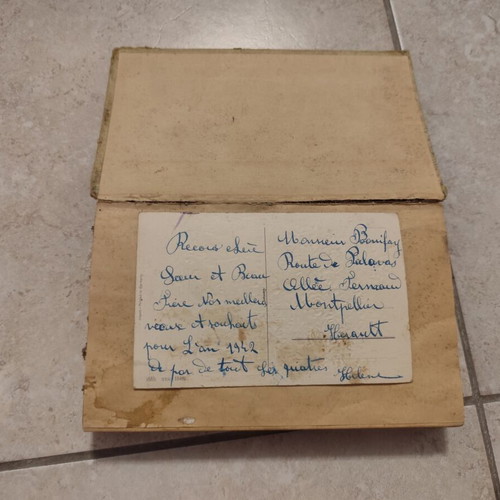 Recois chère
Sœur et Beau
frère Nos meilleurs
vœux et souhait
pour L'an 1942
de par de tout les quatres Helene
Monsieur Bonifay
Route de Palavas
Allée Fernand
Montpellier
Herault